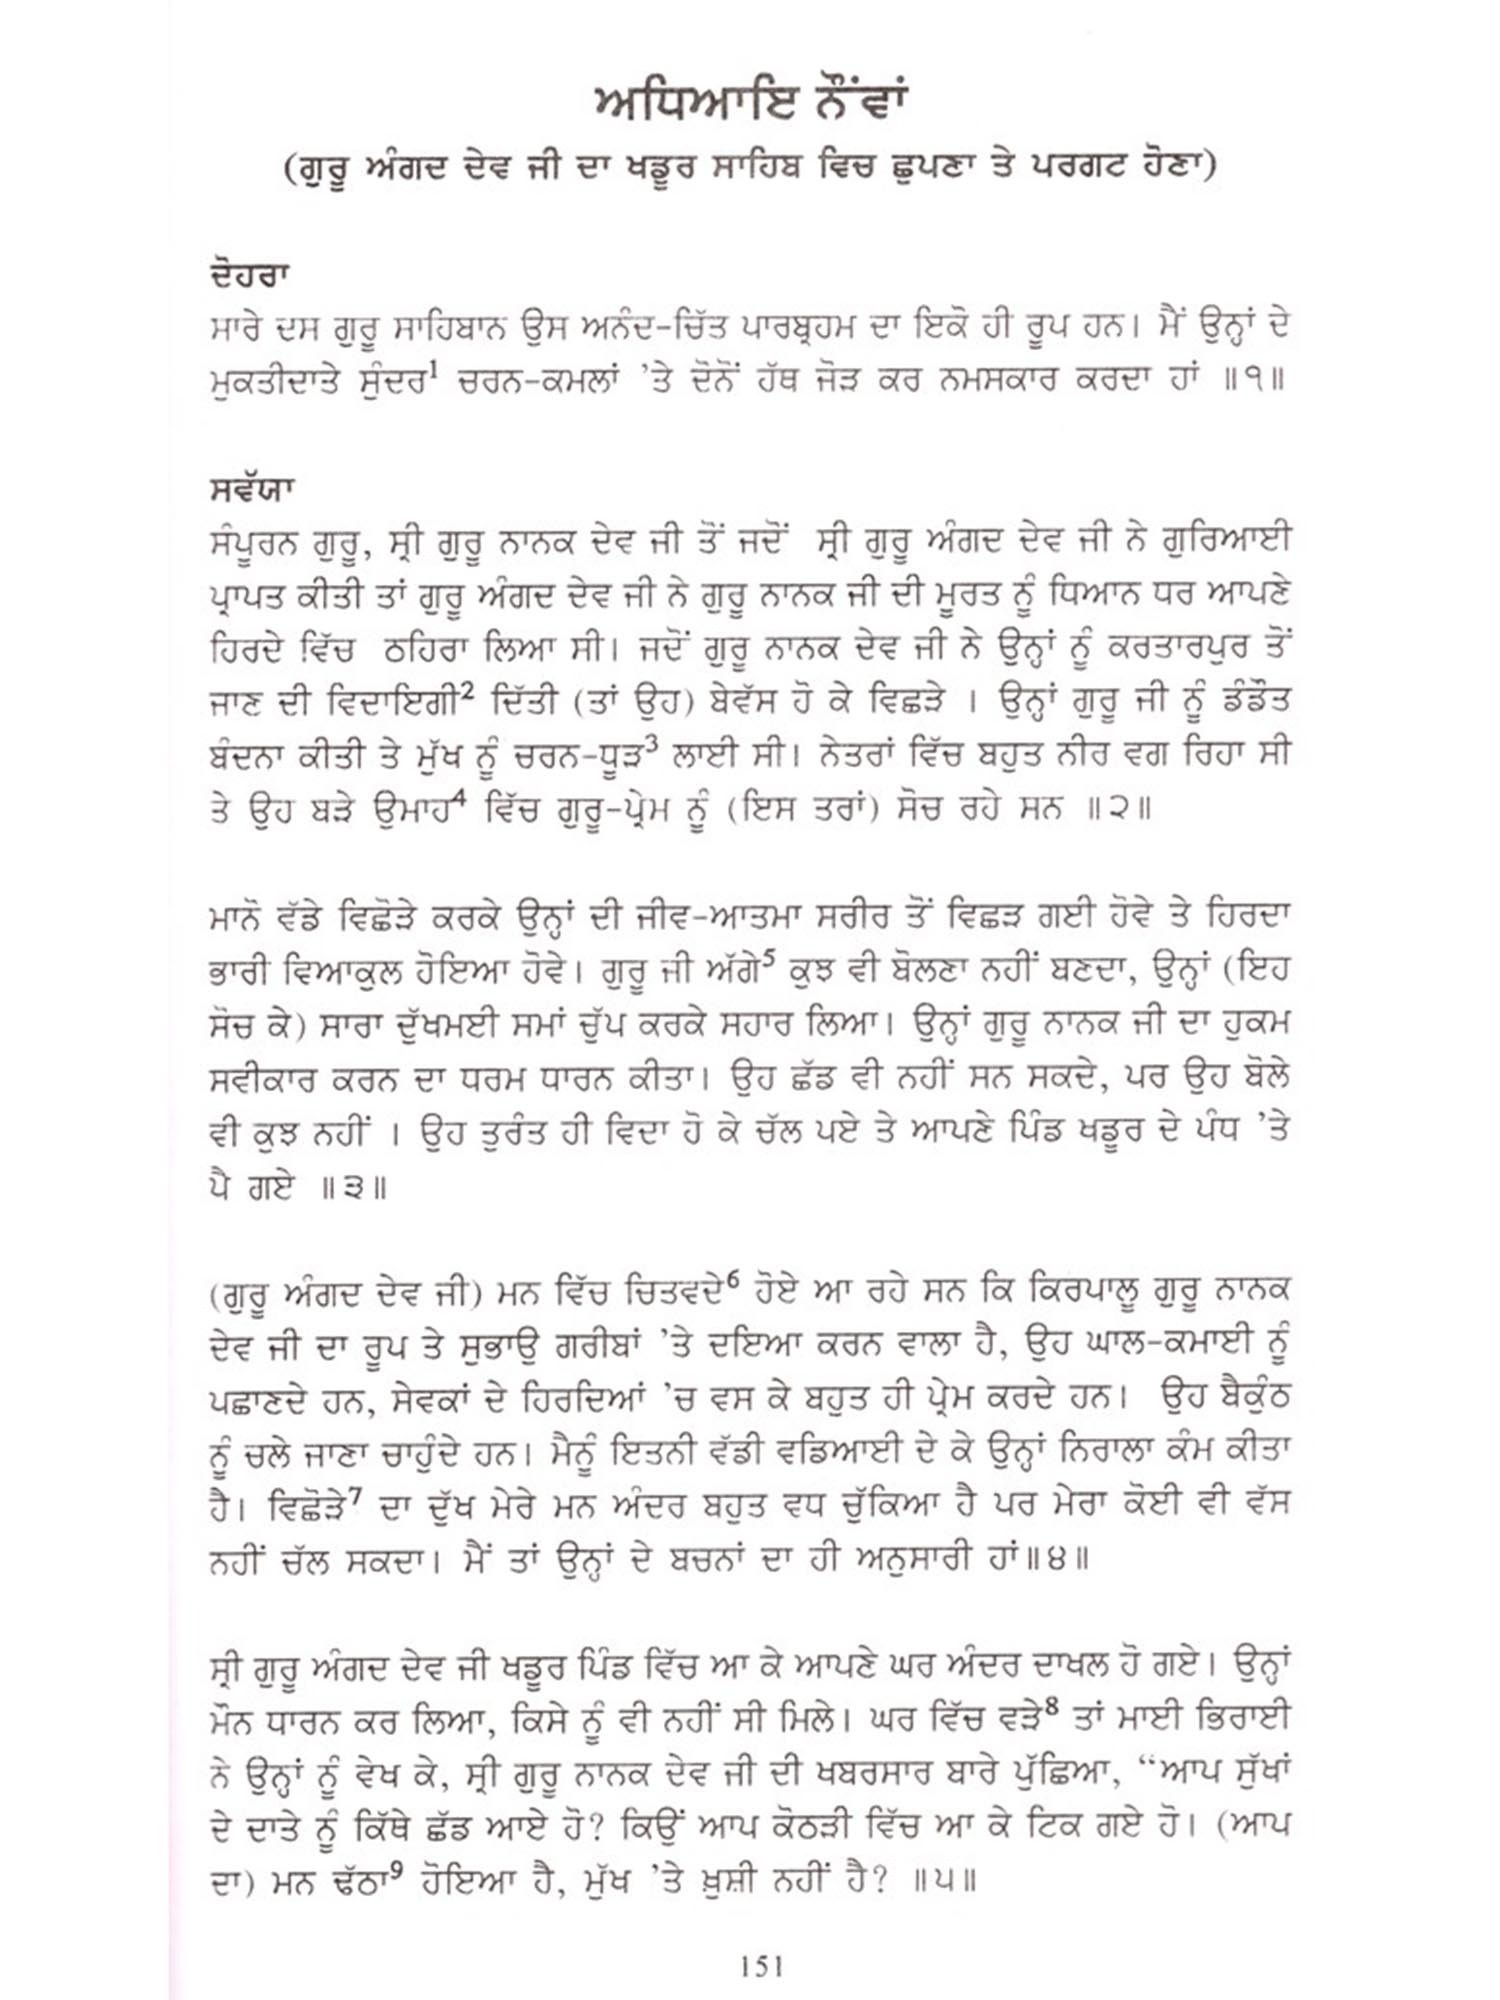 ਅਧਿਆਇ ਨੌਂਵਾਂ
(ਗੁਰੂ ਅੰਗਦ ਦੇਵ ਜੀ ਦਾ ਖਡੂਰ ਸਾਹਿਬ ਵਿਚ ਛੁਪਣਾ ਤੇ ਪਰਗਟ ਹੋਣਾ)
ਦੋਹਰਾ
ਸਾਰੇ ਦਸ ਗੁਰੂ ਸਾਹਿਬਾਨ ਉਸ ਅਨੰਦ-ਚਿੱਤ ਪਾਰਬ੍ਰਹਮ ਦਾ ਇਕੋ ਹੀ ਰੂਪ ਹਨ। ਮੈਂ ਉਨ੍ਹਾਂ ਦੇ
ਮੁਕਤੀਦਾਤੇ ਸੁੰਦਰ¹ ਚਰਨ-ਕਮਲਾਂ ’ਤੇ ਦੋਨੋਂ ਹੱਥ ਜੋੜ ਕਰ ਨਮਸਕਾਰ ਕਰਦਾ ਹਾਂ ॥੧॥
ਸਵੱਯਾ
ਸੰਪੂਰਨ ਗੁਰੂ, ਸ੍ਰੀ ਗੁਰੂ ਨਾਨਕ ਦੇਵ ਜੀ ਤੋਂ ਜਦੋਂ ਸ੍ਰੀ ਗੁਰੂ ਅੰਗਦ ਦੇਵ ਜੀ ਨੇ ਗੁਰਿਆਈ
ਪ੍ਰਾਪਤ ਕੀਤੀ ਤਾਂ ਗੁਰੂ ਅੰਗਦ ਦੇਵ ਜੀ ਨੇ ਗੁਰੂ ਨਾਨਕ ਜੀ ਦੀ ਮੂਰਤ ਨੂੰ ਧਿਆਨ ਧਰ ਆਪਣੇ
ਹਿਰਦੇ ਵਿੱਚ ਠਹਿਰਾ ਲਿਆ ਸੀ। ਜਦੋਂ ਗੁਰੂ ਨਾਨਕ ਦੇਵ ਜੀ ਨੇ ਉਨ੍ਹਾਂ ਨੂੰ ਕਰਤਾਰਪੁਰ ਤੋਂ
ਜਾਣ ਦੀ ਵਿਦਾਇਗੀ² ਦਿੱਤੀ (ਤਾਂ ਉਹ) ਬੇਵੱਸ ਹੋ ਕੇ ਵਿਛੜੇ । ਉਨ੍ਹਾਂ ਗੁਰੂ ਜੀ ਨੂੰ ਡੰਡੌਤ
ਬੰਦਨਾ ਕੀਤੀ ਤੇ ਮੁੱਖ ਨੂੰ ਚਰਨ-ਧੂੜ³ ਲਾਈ ਸੀ। ਨੇਤਰਾਂ ਵਿੱਚ ਬਹੁਤ ਨੀਰ ਵਗ ਰਿਹਾ ਸੀ
ਤੇ ਉਹ ਬੜੇ ਉਮਾਹ⁴ ਵਿੱਚ ਗੁਰੂ-ਪ੍ਰੇਮ ਨੂੰ (ਇਸ ਤਰਾਂ) ਸੋਚ ਰਹੇ ਸਨ ॥੨॥
ਮਾਨੋ ਵੱਡੇ ਵਿਛੋੜੇ ਕਰਕੇ ਉਨ੍ਹਾਂ ਦੀ ਜੀਵ-ਆਤਮਾ ਸਰੀਰ ਤੋਂ ਵਿਛੜ ਗਈ ਹੋਵੇ ਤੇ ਹਿਰਦਾ
ਭਾਰੀ ਵਿਆਕੁਲ ਹੋਇਆ ਹੋਵੇ। ਗੁਰੂ ਜੀ ਅੱਗੇ⁵ ਕੁਝ ਵੀ ਬੋਲਣਾ ਨਹੀਂ ਬਣਦਾ, ਉਨ੍ਹਾਂ (ਇਹ
ਸੋਚ ਕੇ) ਸਾਰਾ ਦੁੱਖਮਈ ਸਮਾਂ ਚੁੱਪ ਕਰਕੇ ਸਹਾਰ ਲਿਆ। ਉਨ੍ਹਾਂ ਗੁਰੂ ਨਾਨਕ ਜੀ ਦਾ ਹੁਕਮ
ਸਵੀਕਾਰ ਕਰਨ ਦਾ ਧਰਮ ਧਾਰਨ ਕੀਤਾ। ਉਹ ਛੱਡ ਵੀ ਨਹੀਂ ਸਨ ਸਕਦੇ, ਪਰ ਉਹ ਬੋਲੇ
ਵੀ ਕੁਝ ਨਹੀਂ । ਉਹ ਤੁਰੰਤ ਹੀ ਵਿਦਾ ਹੋ ਕੇ ਚੱਲ ਪਏ ਤੇ ਆਪਣੇ ਪਿੰਡ ਖਡੂਰ ਦੇ ਪੰਧ ’ਤੇ
ਪੈ ਗਏ ॥੩॥
(ਗੁਰੂ ਅੰਗਦ ਦੇਵ ਜੀ) ਮਨ ਵਿੱਚ ਚਿਤਵਦੇ⁶ ਹੋਏ ਆ ਰਹੇ ਸਨ ਕਿ ਕਿਰਪਾਲੂ ਗੁਰੂ ਨਾਨਕ
ਦੇਵ ਜੀ ਦਾ ਰੂਪ ਤੇ ਸੁਭਾਉ ਗਰੀਬਾਂ ’ਤੇ ਦਇਆ ਕਰਨ ਵਾਲਾ ਹੈ, ਉਹ ਘਾਲ-ਕਮਾਈ ਨੂੰ
ਪਛਾਣਦੇ ਹਨ, ਸੇਵਕਾਂ ਦੇ ਹਿਰਦਿਆਂ ’ਚ ਵਸ ਕੇ ਬਹੁਤ ਹੀ ਪ੍ਰੇਮ ਕਰਦੇ ਹਨ। ਉਹ ਬੈਕੁੰਠ
ਨੂੰ ਚਲੇ ਜਾਣਾ ਚਾਹੁੰਦੇ ਹਨ। ਮੈਨੂੰ ਇਤਨੀ ਵੱਡੀ ਵਡਿਆਈ ਦੇ ਕੇ ਉਨ੍ਹਾਂ ਨਿਰਾਲਾ ਕੰਮ ਕੀਤਾ
ਹੈ। ਵਿਛੋੜੇ⁷ ਦਾ ਦੁੱਖ ਮੇਰੇ ਮਨ ਅੰਦਰ ਬਹੁਤ ਵਧ ਚੁੱਕਿਆ ਹੈ ਪਰ ਮੇਰਾ ਕੋਈ ਵੀ ਵੱਸ
ਨਹੀਂ ਚੱਲ ਸਕਦਾ। ਮੈਂ ਤਾਂ ਉਨ੍ਹਾਂ ਦੇ ਬਚਨਾਂ ਦਾ ਹੀ ਅਨੁਸਾਰੀ ਹਾਂ॥੪॥
ਸ੍ਰੀ ਗੁਰੂ ਅੰਗਦ ਦੇਵ ਜੀ ਖਡੂਰ ਪਿੰਡ ਵਿੱਚ ਆ ਕੇ ਆਪਣੇ ਘਰ ਅੰਦਰ ਦਾਖਲ ਹੋ ਗਏ। ਉਨ੍ਹਾਂ
ਮੌਨ ਧਾਰਨ ਕਰ ਲਿਆ, ਕਿਸੇ ਨੂੰ ਵੀ ਨਹੀਂ ਸੀ ਮਿਲੇ। ਘਰ ਵਿੱਚ ਵੜੇ⁸ ਤਾਂ ਮਾਈ ਭਿਰਾਈ
ਨੇ ਉਨ੍ਹਾਂ ਨੂੰ ਵੇਖ ਕੇ, ਸ੍ਰੀ ਗੁਰੂ ਨਾਨਕ ਦੇਵ ਜੀ ਦੀ ਖਬਰਸਾਰ ਬਾਰੇ ਪੁੱਛਿਆ, “ਆਪ ਸੁੱਖਾਂ
ਦੇ ਦਾਤੇ ਨੂੰ ਕਿੱਥੇ ਛੱਡ ਆਏ ਹੋ? ਕਿਉਂ ਆਪ ਕੋਠੜੀ ਵਿੱਚ ਆ ਕੇ ਟਿਕ ਗਏ ਹੋ। (ਆਪ
ਦਾ) ਮਨ ਢੱਠਾ⁹ ਹੋਇਆ ਹੈ, ਮੁੱਖ ’ਤੇ ਖ਼ੁਸ਼ੀ ਨਹੀਂ ਹੈ? ॥੫॥
151